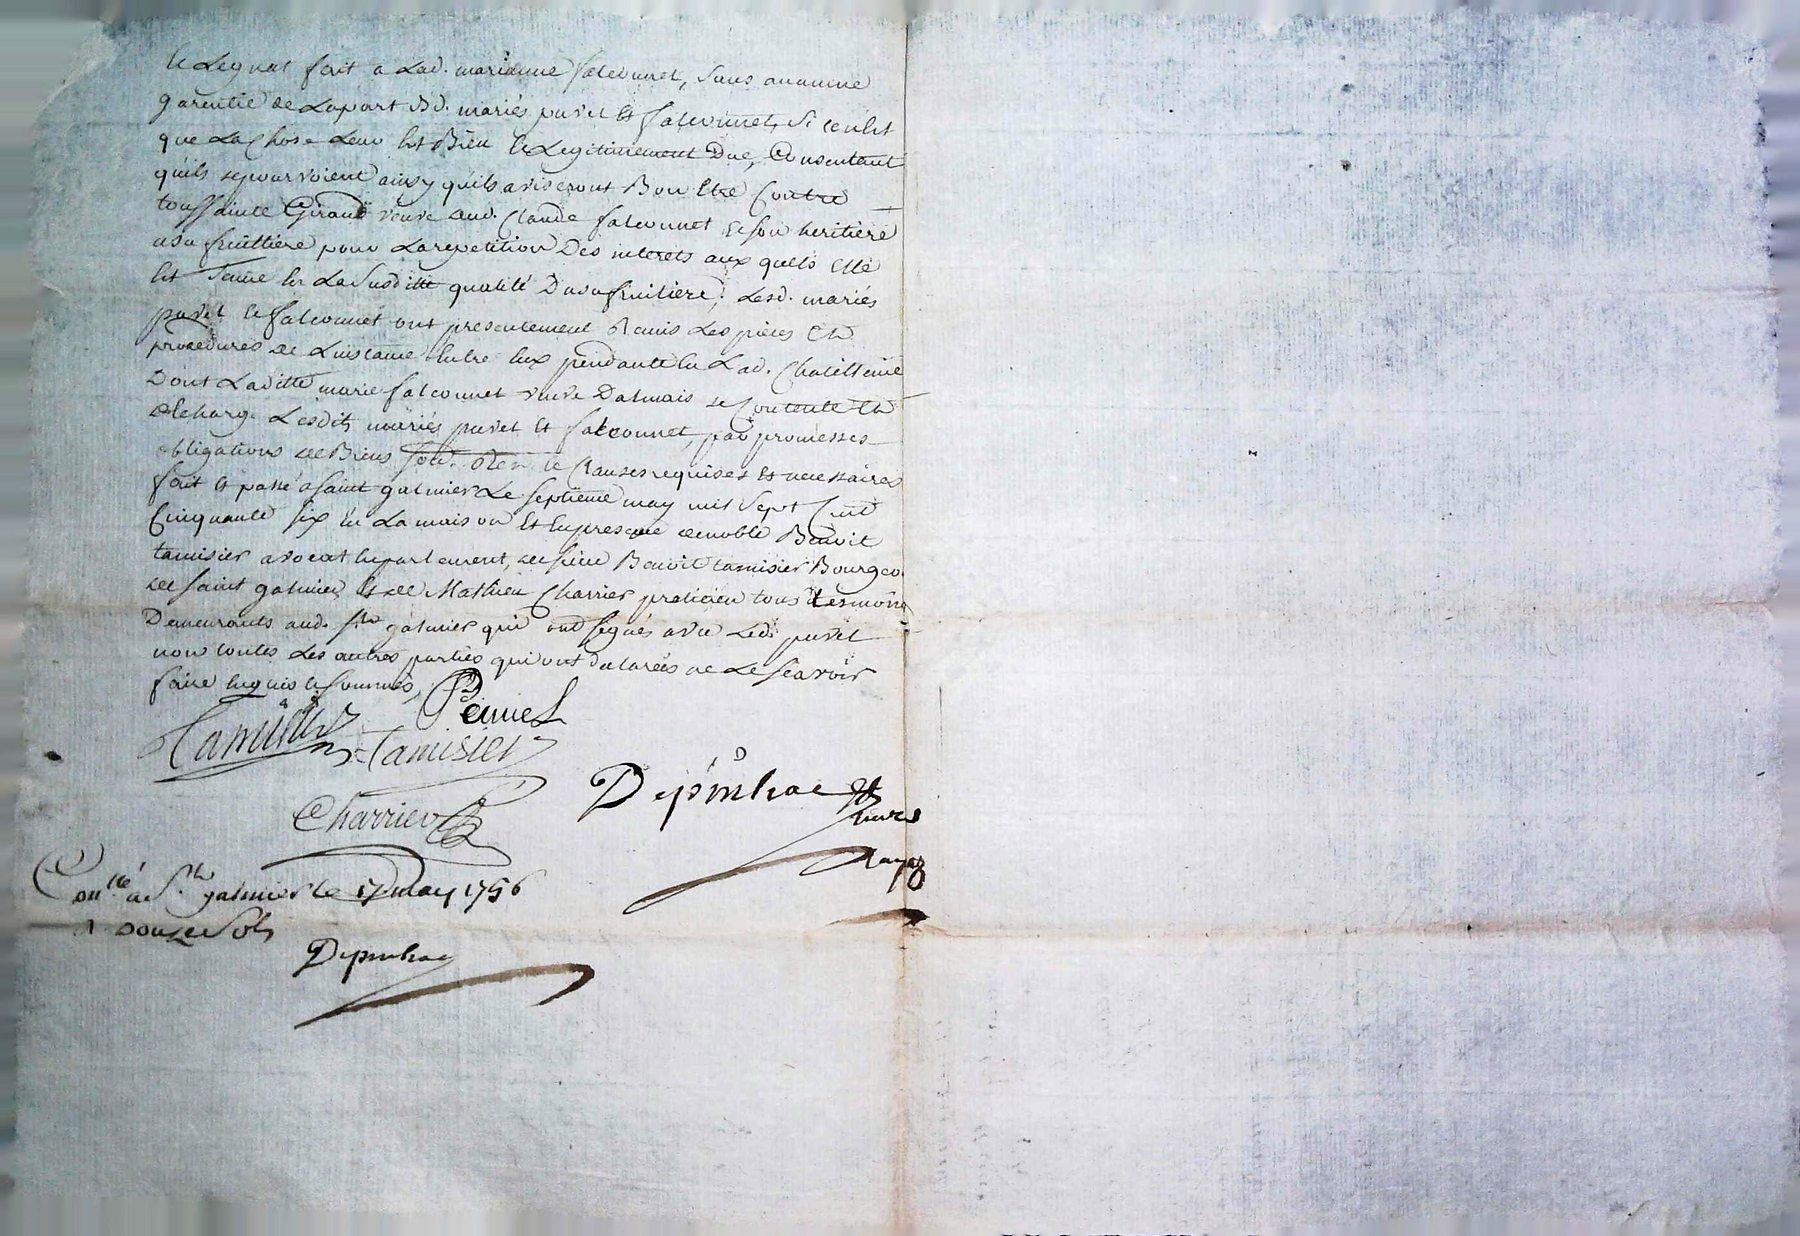 le Legnat fait a Lad. marianne falconnet, sans aucunne
garentie de Lapart desd. mariés puvel et falconnet, si ce n'est
que La Chose Leur est Bien et Legitimement Due, Consentent
quils sepourvoient ainsy quils aviseront Bon Etre Contre
toussainte Giraud veuve aud. Claude falconnet et son heritiere
usufruittiere pour Larepetition Des interets aux quels elle
est tenue en La Susditte qualité Dusufruitiere, Lesd. mariés
puvel et falconnet ont presentement Remis Les pieces et
procedures de Linstance entre eux pendante en Lad. Chatellenie
Dont Laditte marie falconnet veuve Dalmais se Contente et
decharge Lesdits mariés puvel et falconnet, par promesses
obligations de Biens et Clauses requises et necessaires
fait et passé a saint galmier Le septieme may mil sept Cent
Cinquante six en La maison et En presence de noble Benoit
tamisier avocat en parlement, de sieur Benoit tamisier Bourgeo.
de saint galmier et de Mathieu Charrier praticien tous tesmoins
Demeurants aud. St galmier qui ont signés avec Led. puvel
non toutes Les autres parties qui ont declarées ne Le Scavoir
faire enquis et sommés,
Tamisier Puvel
Tamisier
Charrier
Depinhac
Conlé a St galmier le 17 may 1756
R Douze Sols
Depinhac